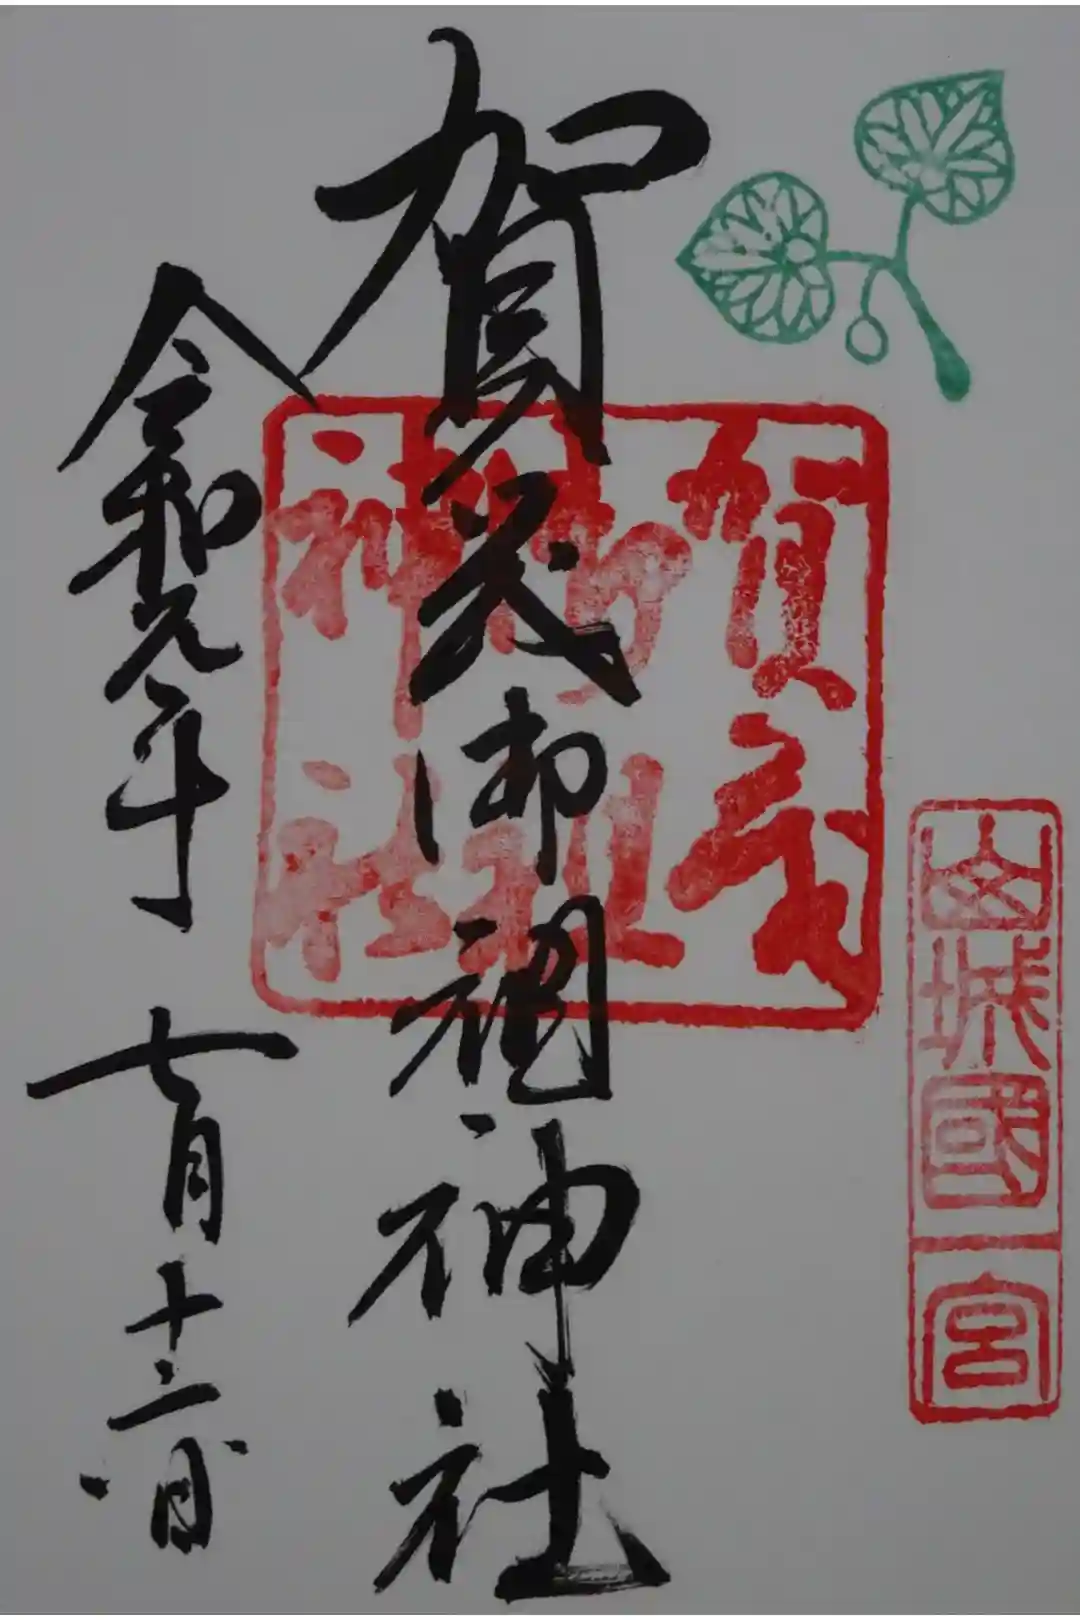 山城國一宮
賀茂
御祖
神社
賀茂御祖神社
令和元年七月十二日